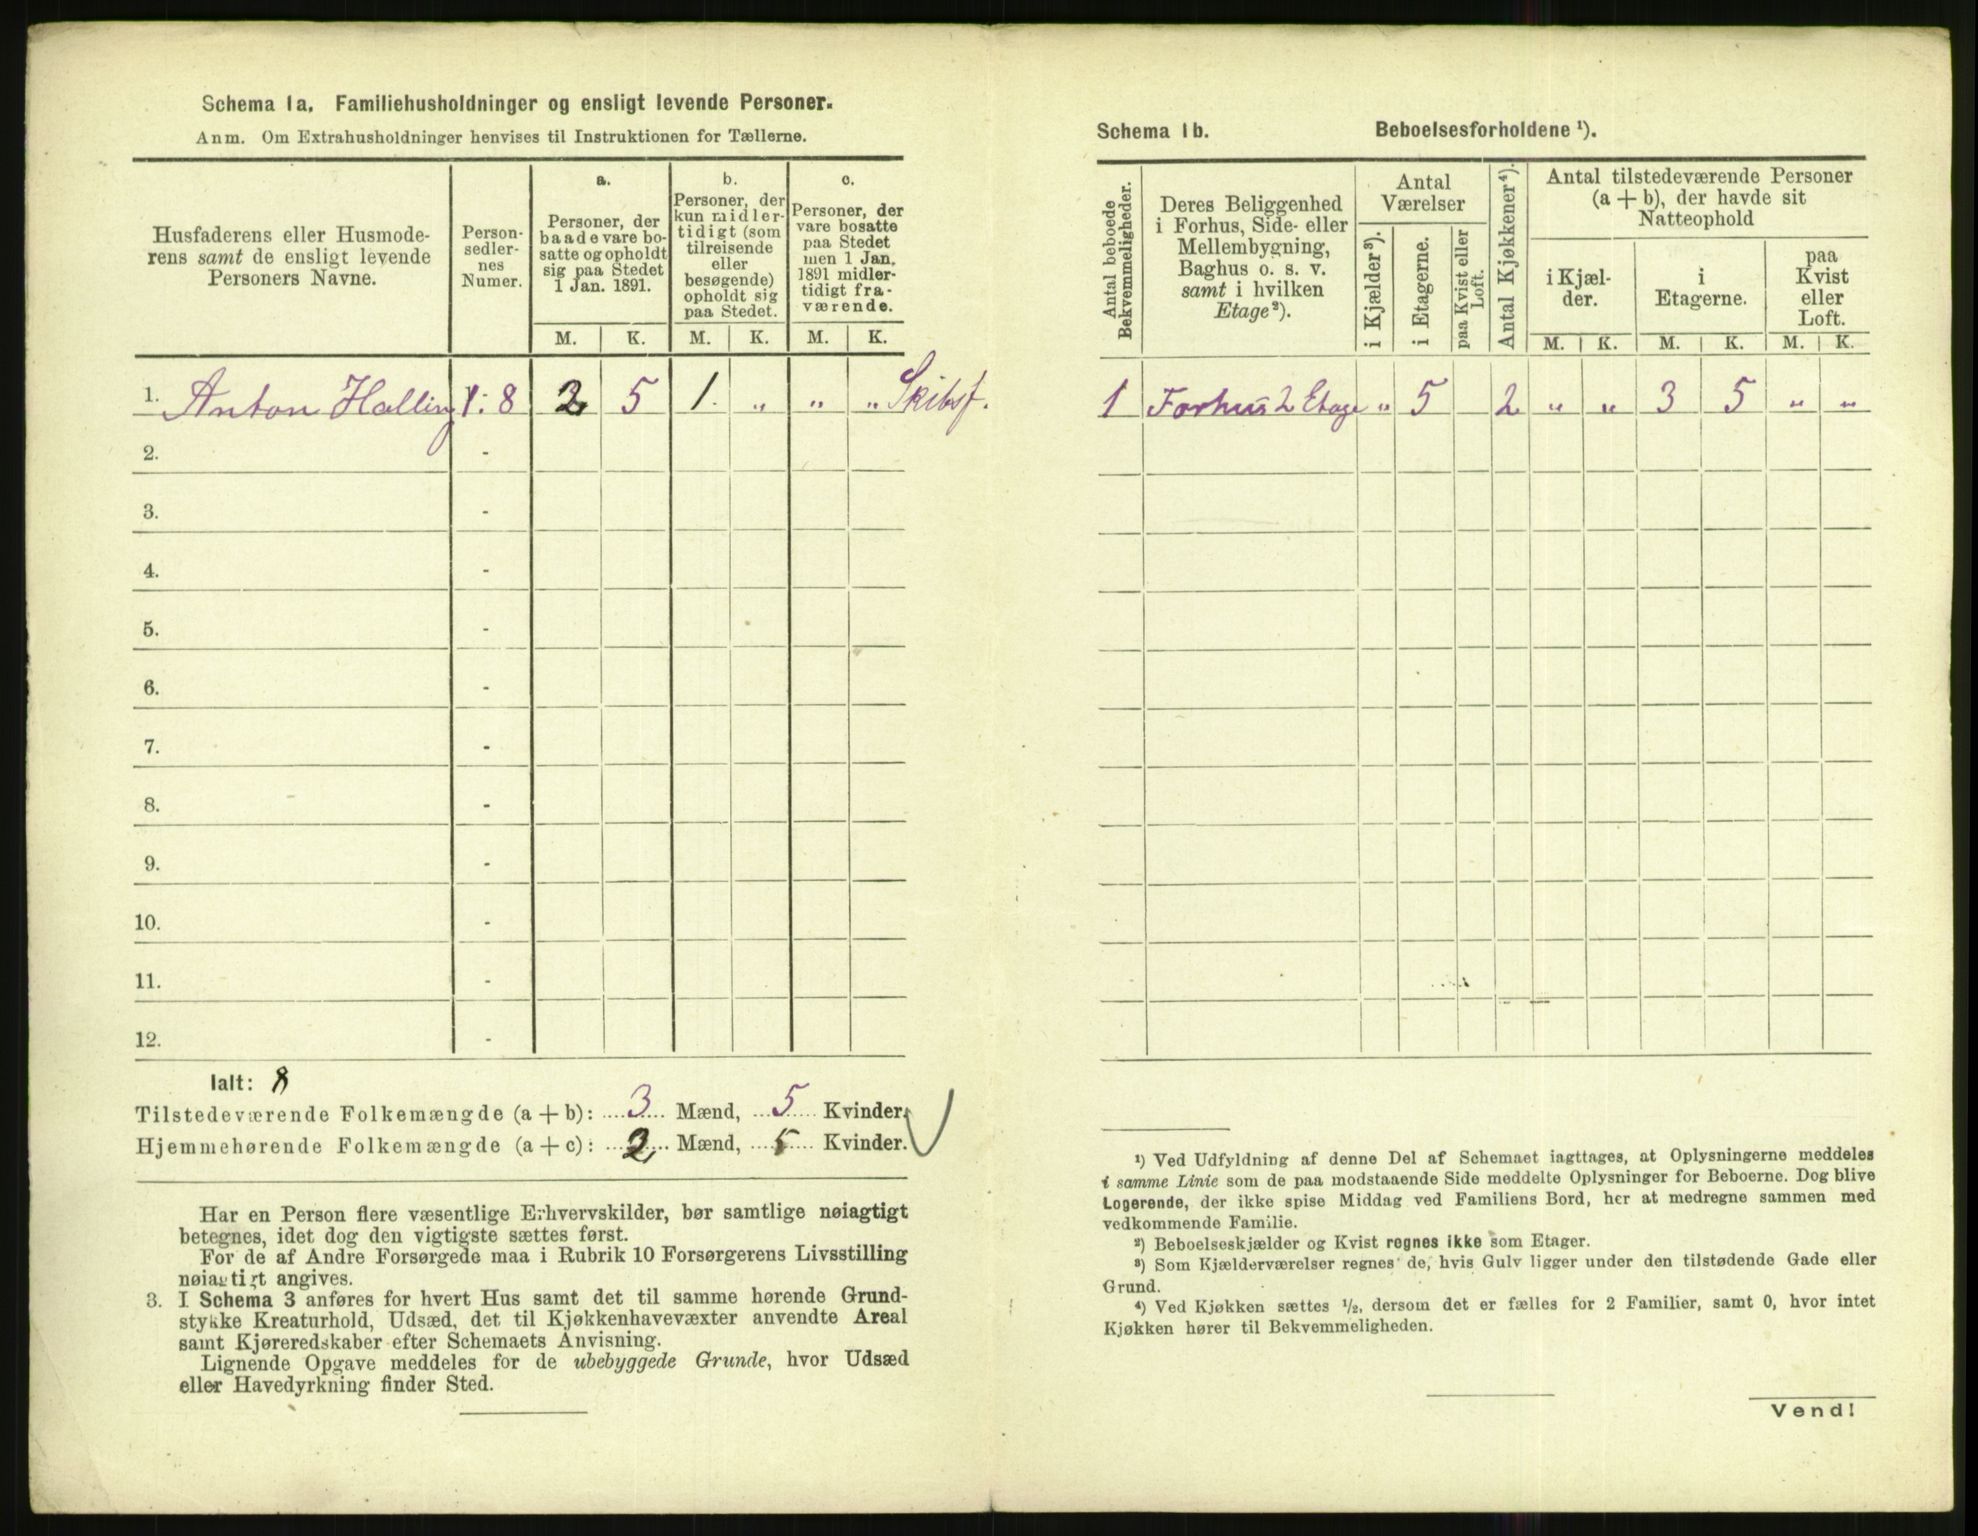 Schema 1a. Familiehusholdninger og ensligt levende Personer.
Anm. Om Extrahusholdninger henvises til Instruktionen for Tællerne.
Husfaderens eller Husmode-
rens samt de ensligt levende
Personers Navne.
Person-
sedler-
nes
Numer.
a.
Personer, der
baade vare bo-
satte og opholdt
sig paa Stedet
1 Jan. 1891.
b.
Personer, der
kun midler-
tidigt (som
tilreisende
eller
besøgende)
opholdt sig
paa Stedet.
c.
Personer, der
vare bosatte
paa Stedet
men 1 Jan.
1891 midler-
tidigt fra-
værende.
M. K. M. K. M. K.
1. Anton Halling 1-8 2 5 1. „ „ „ Skibsf.
2. -
3. -
4. -
5. -
6. -
7. -
8. -
9. -
10. -
11. -
12. -
Ialt: 8
Tilstedeværende Folkemængde (a + b): 3 Mænd, 5 Kvinder.
Hjemmehørende Folkemængde (a + c): 2 Mænd, 5 Kvinder.
Har en Person flere væsentlige Erhvervskilder, bør samtlige nøiagtigt
betegnes, idet dog den vigtigste sættes først.
For de af Andre Forsørgede maa i Rubrik 10 Forsørgerens Livsstilling
nøiagtigt angives.
3. I Schema 3 anføres for hvert Hus samt det til samme hørende Grund-
stykke Kreaturhold, Udsæd, det til Kjøkkenhavevæxter anvendte Areal
samt Kjøreredskaber efter Schemaets Anvisning.
Lignende Opgave meddeles for de ubebyggede Grunde, hvor Udsæd
eller Havedyrkning finder Sted.
Schema 1b. Beboelsesforholdene ¹).
Antal beboede
Bekvemmeligheder.
Deres Beliggenhed
i Forhus, Side- eller
Mellembygning,
Baghus o. s. v.
samt i hvilken
Etage²).
Antal
Værelser
i Kjælder³).
i Etagerne.
paa Kvist eller
Loft.
Antal Kjøkkener⁴).
Antal tilstedeværende Personer
(a + b), der havde sit
Natteophold
i Kjæl-
der.
i
Etagerne.
paa
Kvist
eller
Loft.
M. K. M. K. M. K.
1 Forhus 2 Etage „ 5 2 „ „ 3 5 „ „
¹) Ved Udfyldning af denne Del af Schemaet iagttages, at Oplysningerne meddeles
i samme Linie som de paa modstaaende Side meddelte Oplysninger for Beboerne. Dog blive
Logerende, der ikke spise Middag ved Familiens Bord, her at medregne sammen med
vedkommende Familie.
²) Beboelseskjælder og Kvist regnes ikke som Etager.
³) Som Kjælderværelser regnes de, hvis Gulv ligger under den tilstødende Gade eller
Grund.
⁴) Ved Kjøkken sættes ½, dersom det er fælles for 2 Familier, samt 0, hvor intet
Kjøkken hører til Bekvemmeligheden.
Vend!